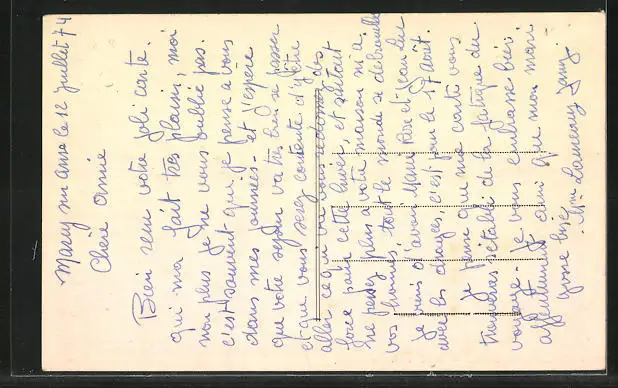 Marcy sur anse le 12 Juillet 74
Chère amie
Bien reçu votre joli carte.
qui ma fait très plaisir, moi
non plus je ne vous oublie pas.
c'est souvent que je pense a vous
dans mes journés - et j'espère
que votre séjour va très bien se passer
et que vous serez contente d'y être
aller ce qui va vous redonné des
force pour cette hiver, et surtout
ne pensez plus a votre maison ni a
vos hommes, tout le monde se débrouille
je viens d'avoir Mary Rose et Jean Luc
avec les c'est pour le 17 août.
je pense que ma carte vous
trouvera rétablie de la fatigue du
voyage - je vous embrasse bien
affectueusement ainsi que mon mari
grosse bise
Mme